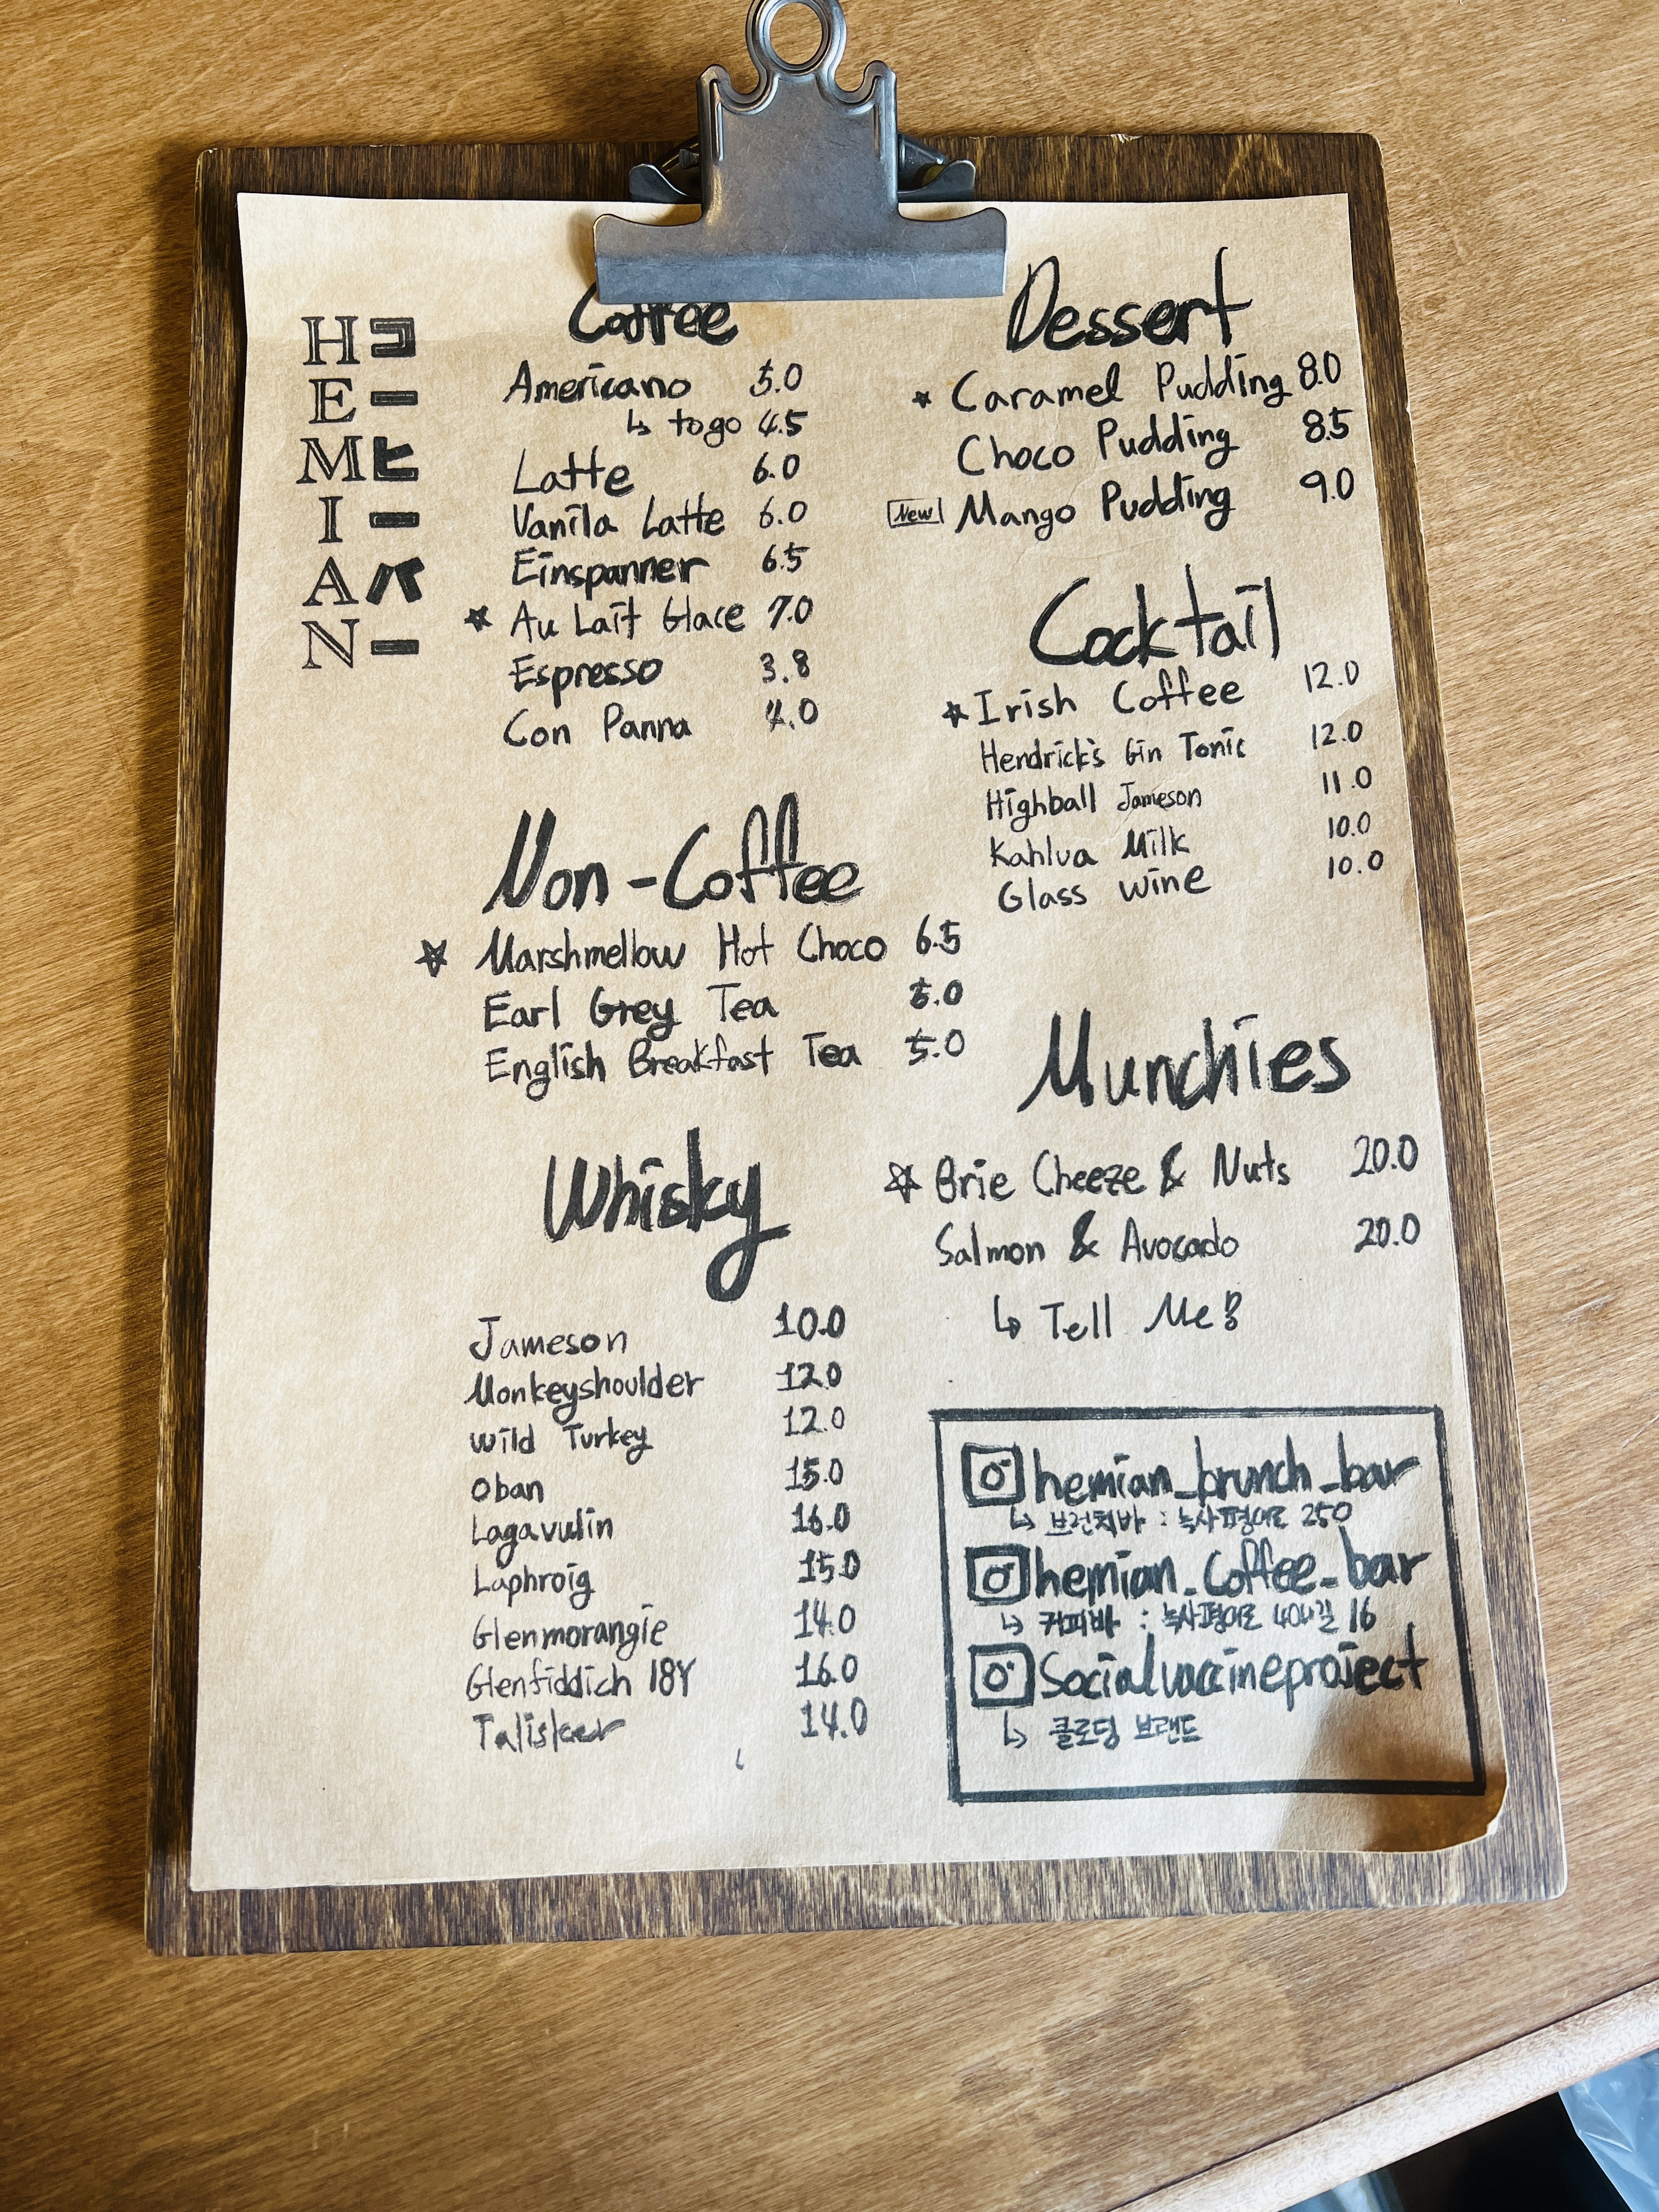 HEMIAN
コーヒーバー
Coffee
Americano 5.0
↳ to go 4.5
Latte 6.0
Vanila Latte 6.0
Einspanner 6.5
★ Au Lait Glace 7.0
Espresso 3.8
Con Panna 4.0
Non-Coffee
★ Marshmellow Hot Choco 6.5
Earl Grey Tea 5.0
English Breakfast Tea 5.0
Whisky
Jameson 10.0
Monkeyshoulder 12.0
Wild Turkey 12.0
Oban 15.0
Lagavulin 16.0
Laphroig 15.0
Glenmorangie 14.0
Glenfiddich 18Y 16.0
Talisker 14.0
Dessert
★ Caramel Pudding 8.0
Choco Pudding 8.5
New Mango Pudding 9.0
Cocktail
★ Irish Coffee 12.0
Hendrick's Gin Tonic 12.0
Highball Jameson 11.0
Kahlua Milk 10.0
Glass wine 10.0
Munchies
☆ Brie Cheeze & Nuts 20.0
Salmon & Avocado 20.0
↳ Tell Me?
hemian_brunch_bar
↳ 브런치바 : 녹사평대로 250
hemian_coffee_bar
↳ 커피바 : 녹사평대로 40나길 16
Socialvaccineproject
↳ 클로딩 브랜드